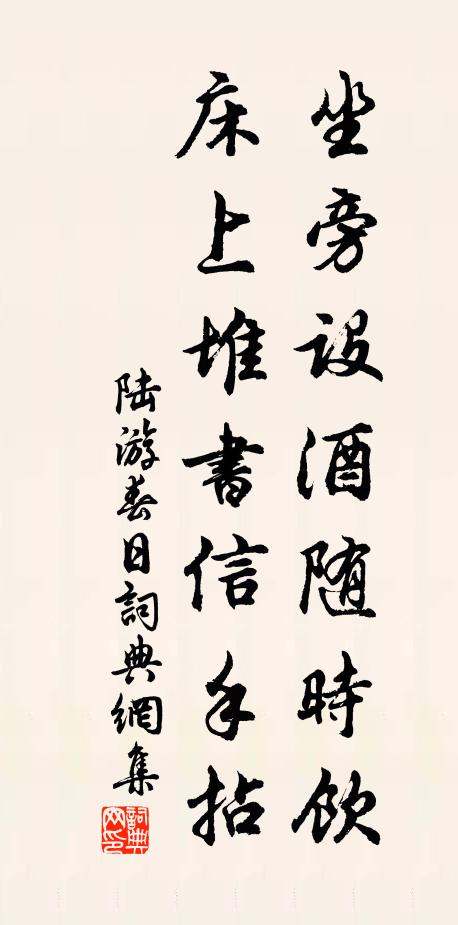 坐旁設酒随時飲
床上堆書信手拈
陆游春日詞典網集
詞典网印